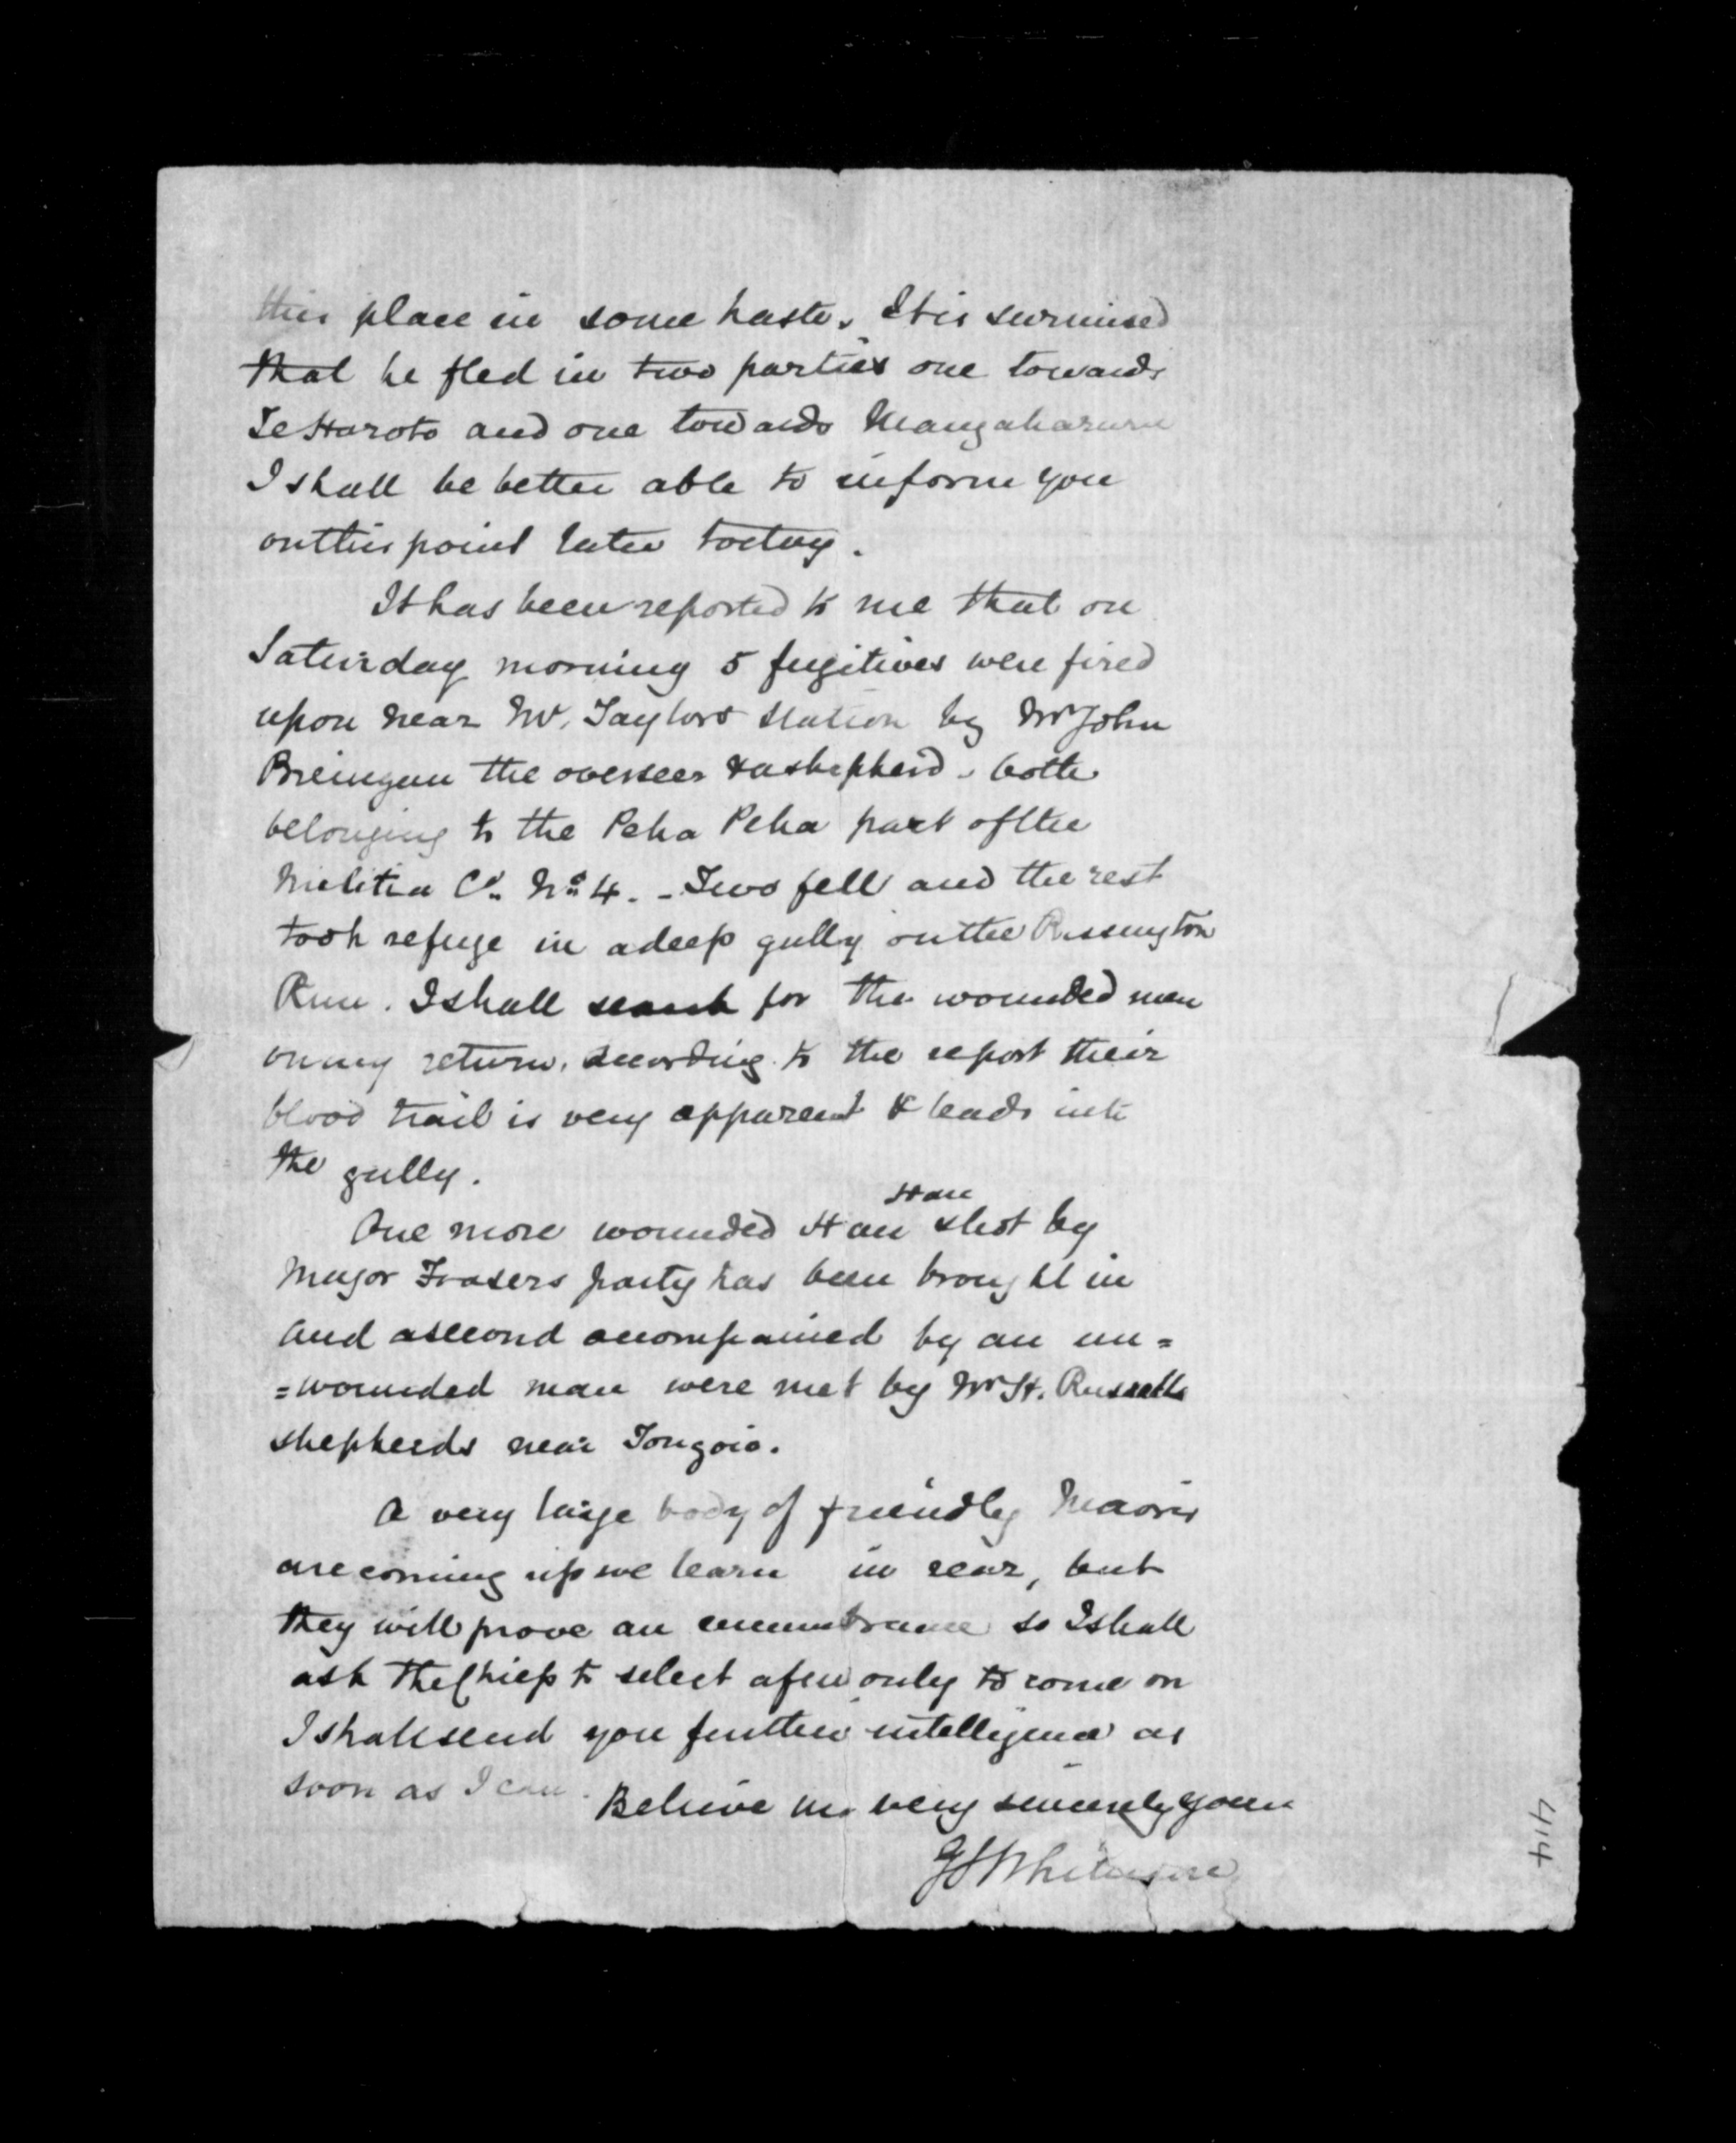 this place in some haste. It is surmised
that he fled in two parties one towards
Te Haroto and one towards Mangaharuru
I shall be better able to inform you
on this point later today.
It has been reported to me that on
Saturday morning 5 fugitives were fired
upon near Mr. Taylors station by Mr John
the overseer & a shepherd - both
belonging to the Peka Peka part of the
Militia Co. No. 4. - Two fell and the rest
took refuge in a deep gully on the Rissington
Run. I shall search for the wounded men
on my return. According to the report their
blood trail is very apparent & leads into
the gully.
One more wounded Hau Hau shot by
Major Frasers party has been brought in
and a second accompained by an un=
=wounded man were met by Mr H. Russells
shepherds near Tongoio.
A very large body of friendly Maoris
are coming up we learn in rear, but
they will prove an encumbrance so I shall
ask the Chiefs to select a few only to come on
I shall send you further intelligence as
soon as I can. Believe me very sincerely yours
G S Whitmore
414